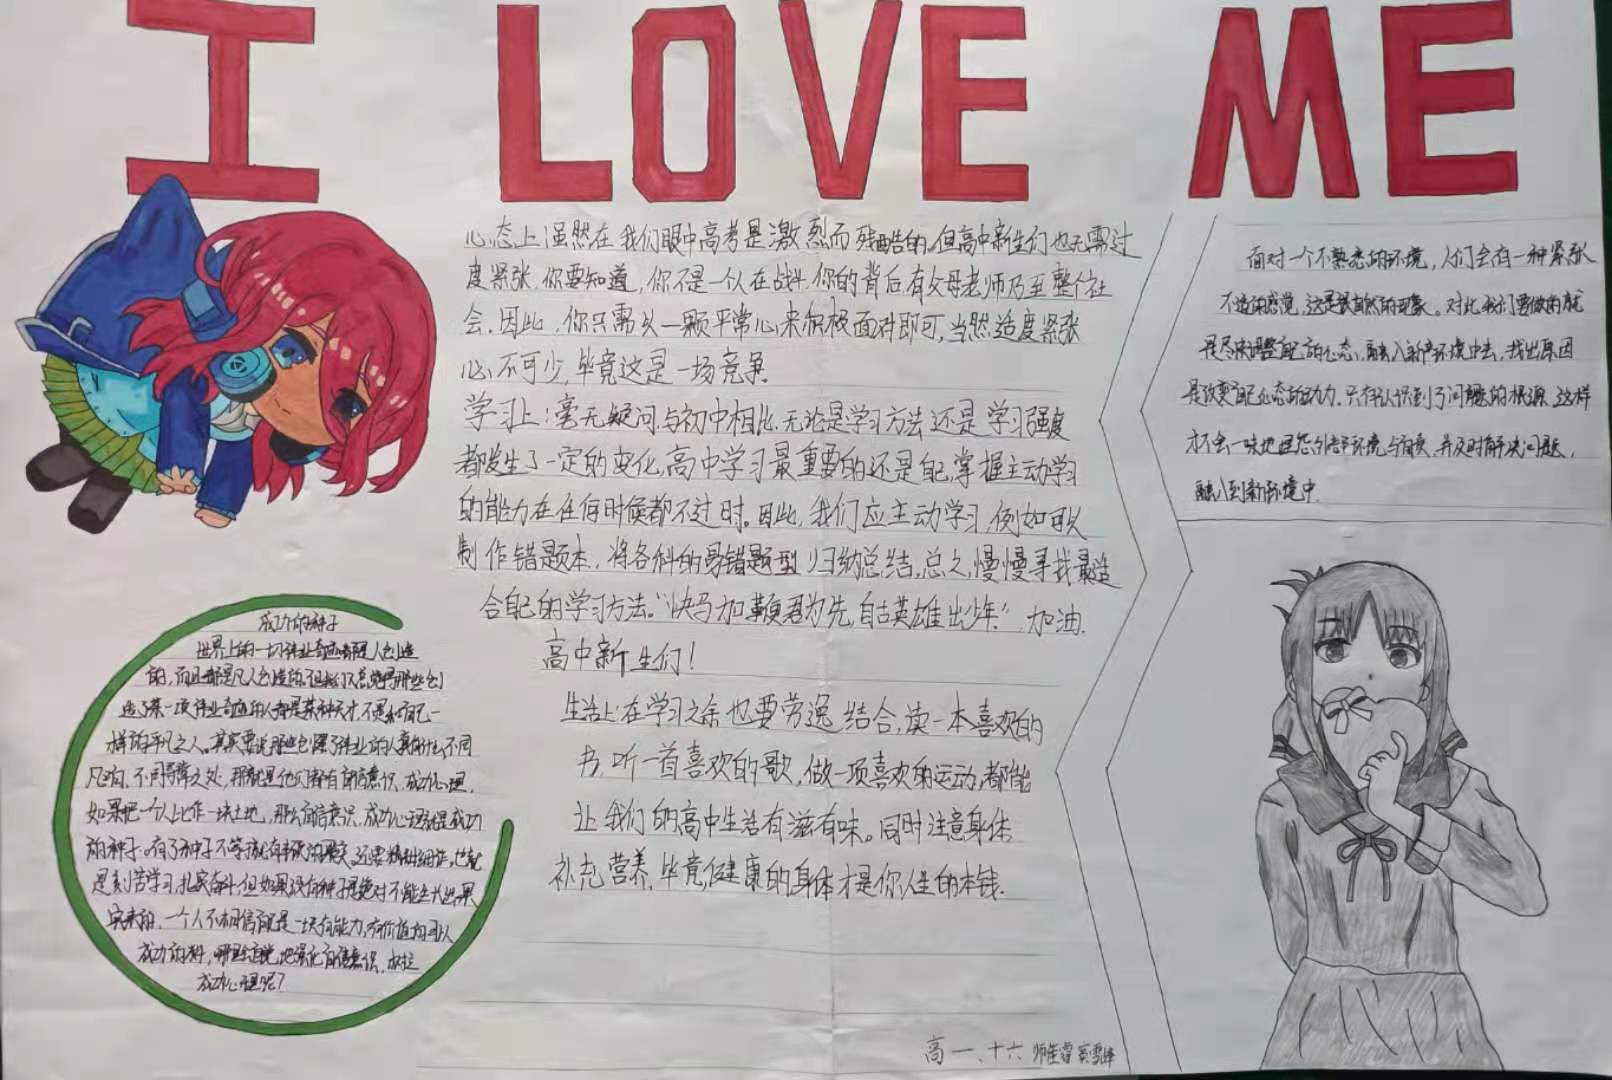 I LOVE ME
心态上：虽然在我们眼中高考是激烈而残酷的，但高中新生们也无需过
度紧张，你要知道，你不是一个人在战斗，你的背后有父母老师乃至整个社
会。因此，你只需以一颗平常心来积极面对即可，当然，适度紧张
心不可少，毕竟这是一场竞争。
学习上：毫无疑问，与初中相比，无论是学习方法还是学习强度
都发生了一定的变化，高中学习最重要的还是自己，掌握主动学习
的能力在任何时候都不过时。因此，我们应主动学习，例如可以
制作错题本，将各科的易错题型归纳总结，总之，慢慢寻找最适
合自己的学习方法。“快马加鞭君为先，自古英雄出少年！”加油，
高中新生们！
生活上：在学习之余也要劳逸结合，读一本喜欢的
书，听一首喜欢的歌，做一项喜欢的运动，都能
让我们的高中生活有滋有味。同时注意身体，
补充营养，毕竟健康的身体才是你人生的本钱。
面对一个不熟悉的环境，人们会有一种紧张
不适的感觉，这是最自然的现象。对此我们要做的就
是尽快调整自己的心态，融入新的环境中去，找出原因
是改变自己心态的动力。只有认识到了问题的根源，这样
才不会一味地埋怨外部环境与自责，并及时解决问题，
融入到新环境中。
成功的种子
世界上的一切伟业奇迹都是人创造
的，而且都是凡人创造的，但我们总觉得那些创
造了某一项伟业奇迹的人都是某种天才，不是和自己一
样的平凡之人。其实要说那些创造了伟业的人真有什么不同
凡响、不同寻常之处，那就是他们都有自信意识，成功心理，
如果把一个人比作一块土地，那么自信意识、成功心理就是成功
的种子。有了种子不等于就有丰硕的果实，还要精耕细作，也就
是刻苦学习，扎实奋斗，但如果没有种子是绝对不能长出果
实来的，一个人不相信自己是一块有能力、有价值、可以
成功的料，哪里会自觉地强化自信意识，树立
成功心理呢？
高一、十六